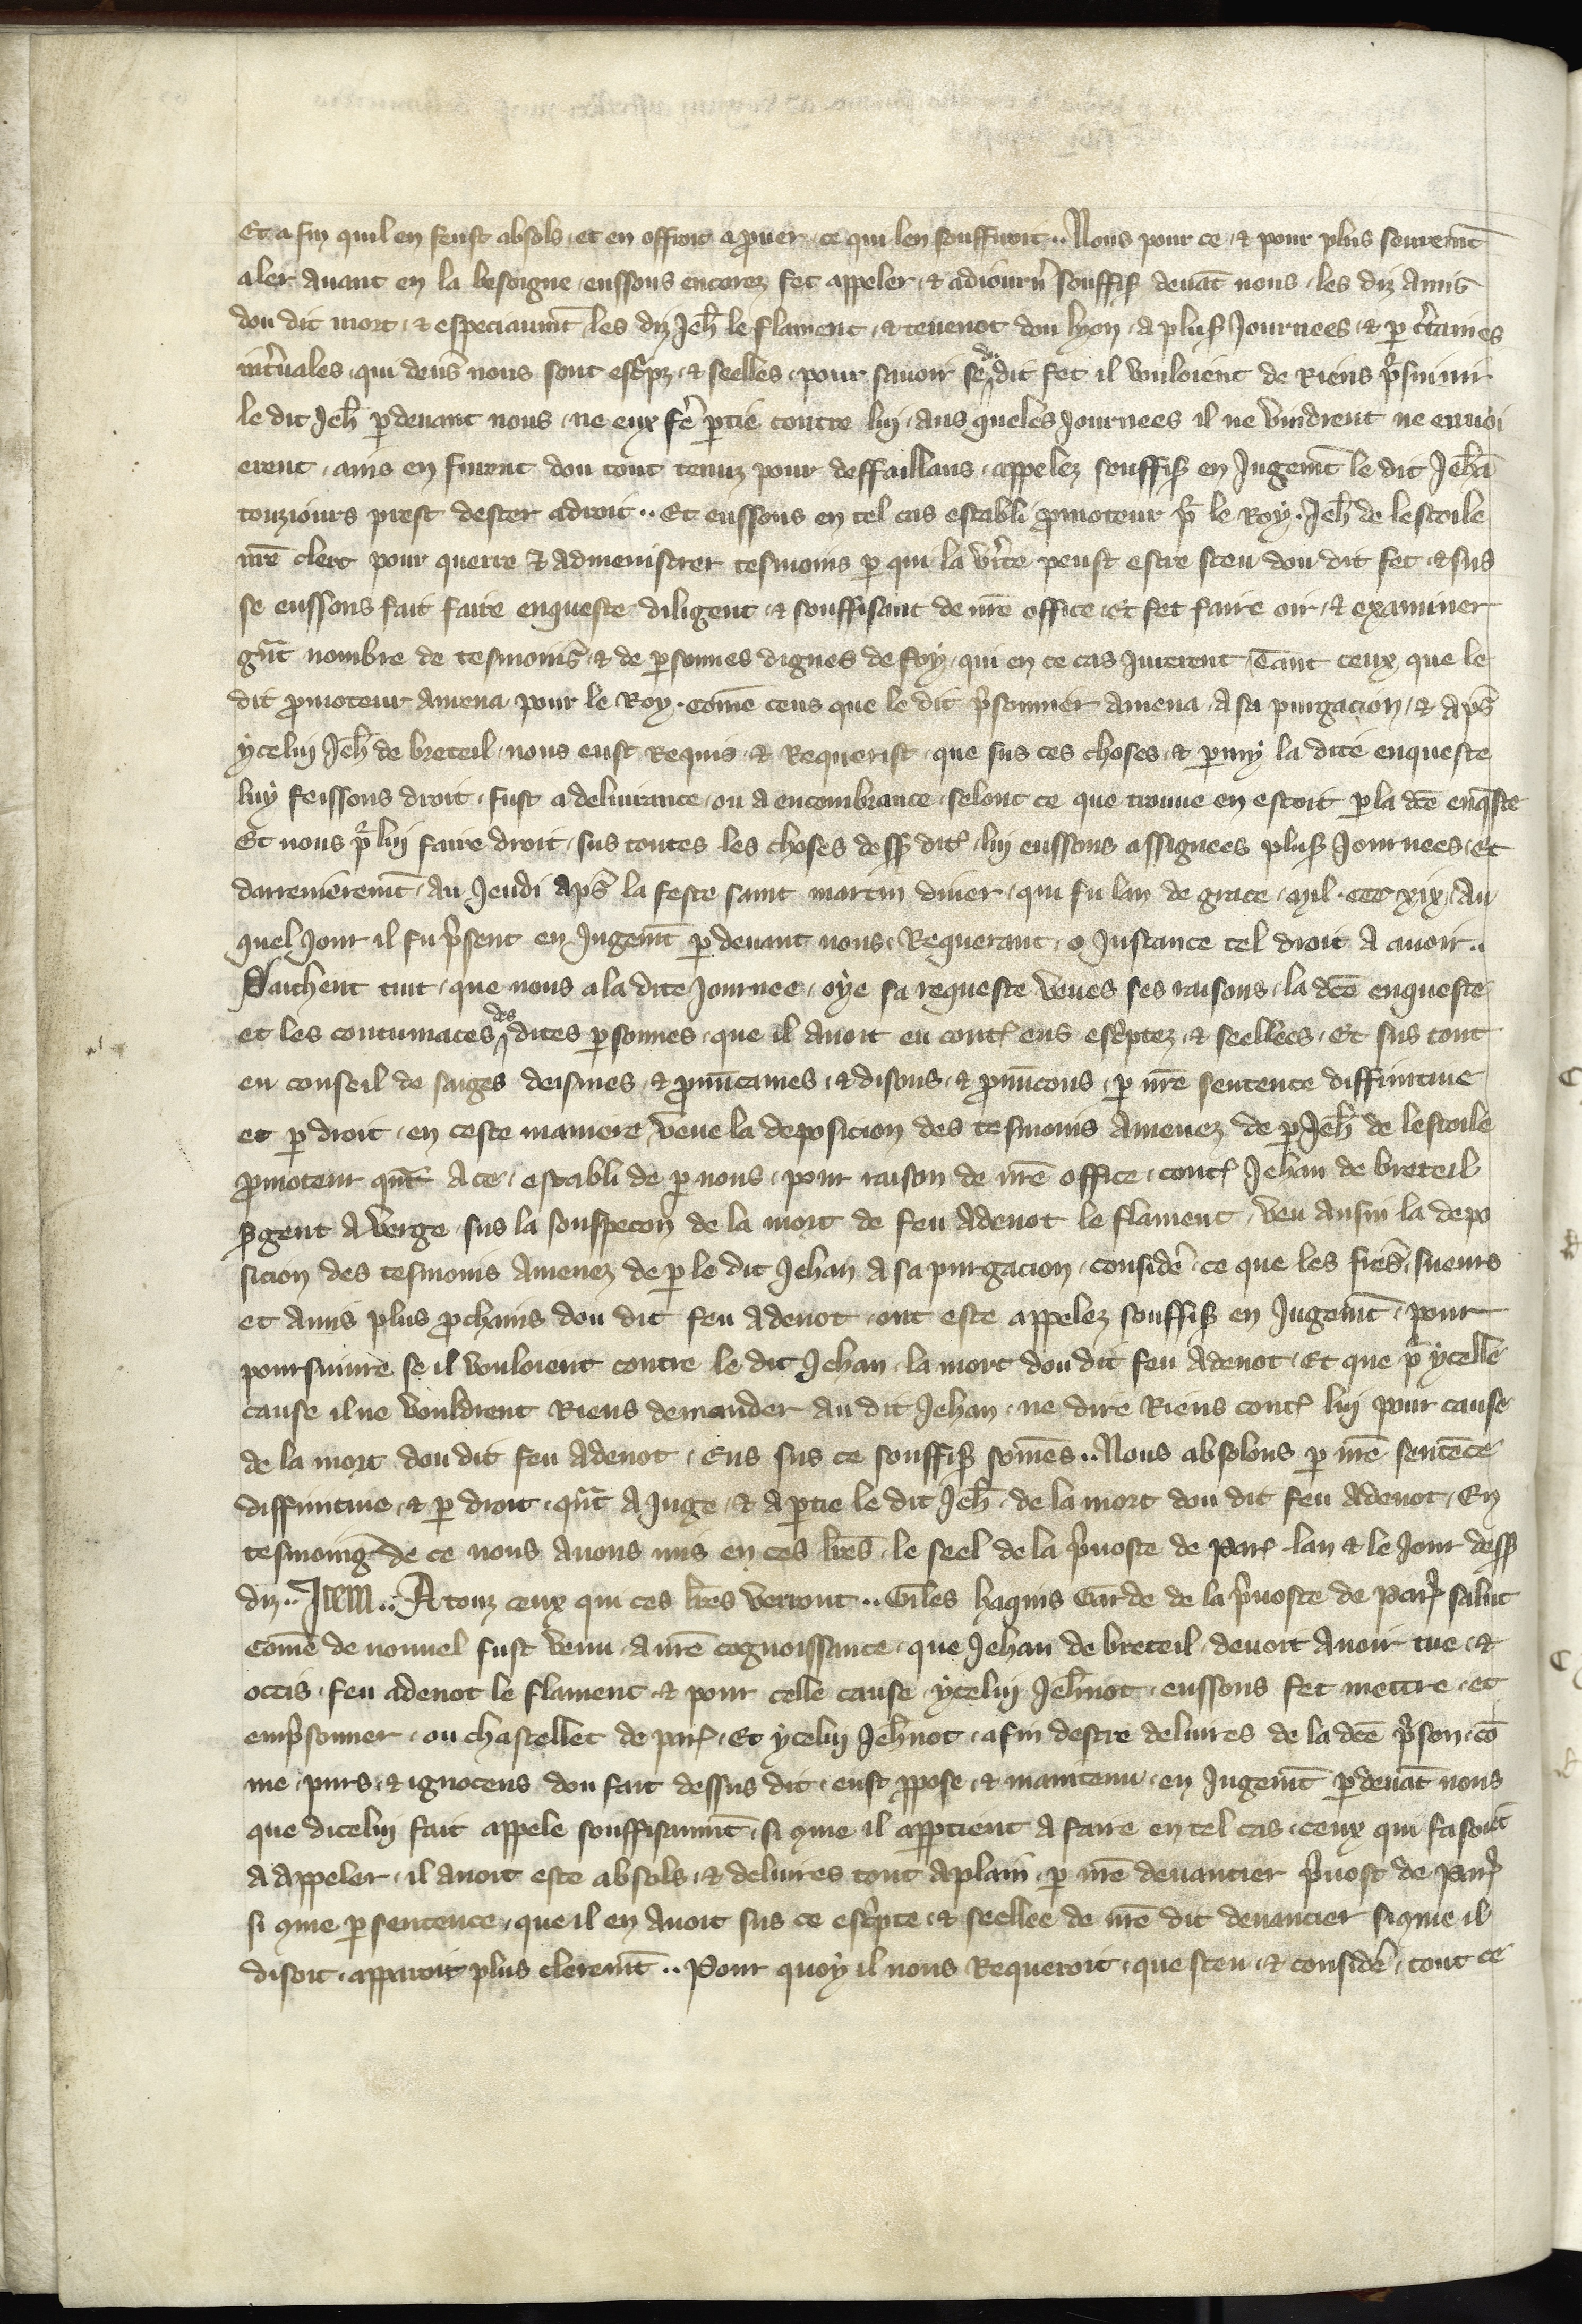 Et a fin quil en feust absols et en offroit a prouer ce qui len souffiroit .. Nous pour ce & pour plus seuremt
aler auant en la besoigne eussons encorez fet appeler & adiourn souffis deuāt nous les diz amis
dou dit mort & especiaumt les diz Jeh le flament & teuenot dou lyon a plus Journees & p ctaines
intuales qui deus nous sont escpz & seelles pour sauoir se du dit fet il vouloient de Riens psuiuir
le dit Jeh pdeuant nous ne eux fe ptie contre lui aus queles Journees il ne vindrent ne enuoi
erent ains en furent dou tout tenuz pour deffaillans appelez souffis en Jugemt le dit Jehā
touziours prest dester a droit .. Et eussons en tel cas establi pmoteur pr le Roy Jeh de lestoile
nre clerc pour querre & admenistrer tesmoins p qui la vite peust estre sceu dou dit fet & sus
se eussons fait faire enqueste diligent & souffisant de nre office Et fet faire oir & examiner
gnt nombre de tesmoins & de psonnes dignes de foy qui en ce cas Jurerent Tant ceux que le
dit pmoteur amena pour le Roy come ceus que le dit psonnier amena a sa purgacion & aps
ycelui Jeh de breteil nous eust Requis & Requerist que sus ces choses & pmy la dite enqueste
luy feissons droit fust a deliurance ou a encombrance selonc ce que trouue en estoit p la dce enqste
Et nous pr lui faire droit sus toutes les choses dess dit lui eussons assignees plus Journees Et
darrenieremt au Jeudi aps la feste saint martin diuer qui fu lan de grace mil ccc xix Au
quel Jour il fu psent en Jugemt pdeuant nous Requerant o Justance tel droit a auoir ..
Saichent tuit que nous a la dite Journee oye sa requeste veues ses raisons la dce enqueste
et les contumaces des dites psonnes que il auoit eu cont eus escptez & seellees Et sus tout
eu conseil de saiges deismes & pnucames & disons & pnucons p nre sentence diffinitiue
et p droit en ceste maniere veue la deposicion des tesmoins amenez de p Jeh de lestoile
pmoteur qnt a ce establi de p nous pour raison de nre office cont Jehan de breteil
sgent a verge sus la souspecon de la mort de feu Adenot le flament veu ausin la depo
sicion des tesmoins amenez de p le dit Jehan a sa purgacion conside ce que les fres sueurs
et amis plus pchains dou dit feu Adenot ont este appelez souffis en Jugemt pour
poursuiure se il vouloient contre le dit Jehan la mort dou dit feu Adenot Et que pr ycelle
cause il ne vouldrent Riens demander au dit Jehan ne dire Riens cont lui pour cause
de la mort dou dit feu Adenot Eus sus ce souffis somes .. Nous absolons p nre sentēce
diffinitiue & p droit qnt a Juge & a ptie le dit Jeh de la mort dou dit feu Adenot En
tesmoing de ce nous auons mis en ces lres le seel de la puoste de Par lan & le Jour dess
diz .. Item .. A touz ceux qui ces lres verront .. Giles haquis Garde de la puoste de Par salut
Come de nouuel fust venu a nre cognoissance que Jehan de breteil deuoit auoir tue &
occis feu adenot le flament & pour celle cause ycelui Jehnot eussons fet mettre et
empsonner ou chastellet de par Et ycelui Jehnot a fin destre deliures de la dce pson cō
me purs & ignocens dou fait dessus dit eust ppose & maintenu en Jugemt pdeuāt nous
que dicelui fait appele souffisaumt si 9me il apptient a faire en tel cas ceux qui fasoiēt
a appeler il auoit este absols & deliures tout a plain p nre deuancier puost de Par
si 9me p sentence que il en auoit sus ce escpte & seellee de nre dit deuancier si 9me il
disoit apparoit plus cleremt .. Pour quoy il nous Requeroit que sceu & conside tout ce